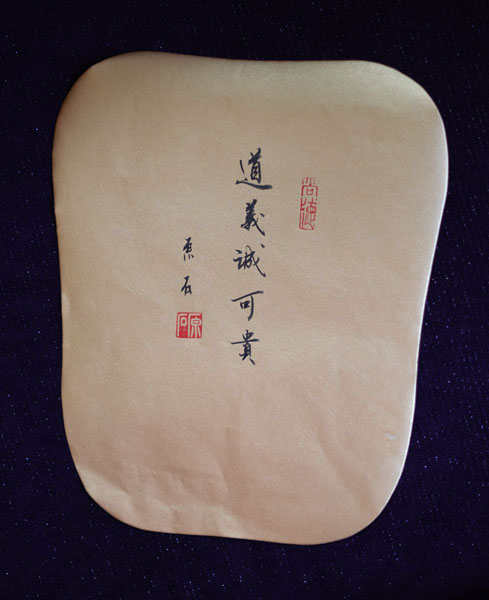 尚德
道義誠可貴
原石
原石